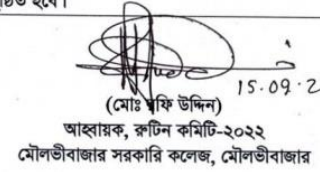 হবে।
15.09.2
(মোঃ রফি উদ্দিন)
আহ্বায়ক, রুটিন কমিটি-২০২২
মৌলভীবাজার সরকারি কলেজ, মৌলভীবাজার